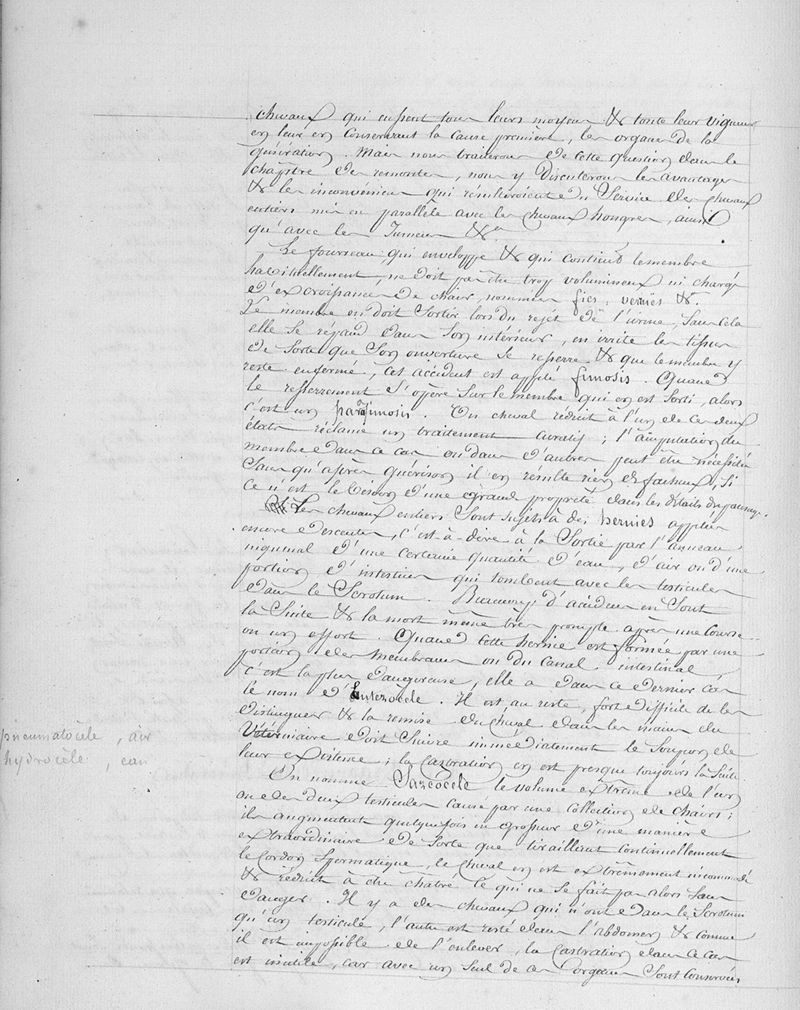 chevaux qui eussent tous leurs moyens & toute leur vigueur
en leur en conservant la cause première, les organes de la
génération. Mais nous traiterons de cette question dans le
chapitre des remontes, nous y discuterons les avantages
& les inconvéniens qui résulteroient du Service des chevaux
entiers mis en parallèle avec les chevaux hongres, ainsi
qu'avec les Jumens &a
Le fourreau qui enveloppe & qui contient le membre
habituellement, ne doit pas être trop volumineux ni chargé
d'excroissances de chair, nommées fics, verrues &.
Le membre en doit Sortir lors du rejet de l'urine, Sans cela
elle se répand dans Son intérieur, en irrite les tissus
de Sorte que Son ouverture se resserre & que le membre y
reste enfermé, cet accident est applé fimosis. Quand
le resserrement S'opère Sur le membre qui en est Sorti, alors
c'est un parafimosis. Un cheval réduit à l'un de ces deux
états réclame un traitement curatif; l'amputation du
membre dans ce cas ou dans d'autres peut être nécessitée
Sans qu'après guérison il en résulte rien de facheux, Si
ce n'est le besoin d'une grande propreté dans les détails du pansage.
Les chevaux entiers Sont sujets à des hernies applées
encore descentes, c'est-à-dire à la Sortie par l'anneau
inguinal d'une certaine quantité d'eau, d'air ou d'une
portion d'intestin qui tombent avec les testicules
dans le Scrotum. Beaucoup d'accidens en Sont
la Suite & la mort même très prompte après une course
ou un effort. Quand cette hernie est formée par une
portion des membranes ou du canal intestinal
c'est la plus dangereuse, elle a dans ce dernier cas
le nom d'Entérocèle. Il est au reste, fort difficile de les
distinguer & la remise du cheval dans les mains du
Vétérinaire doit Suivre immédiatement le Soupçon de
leur existence; la castration en est presque toujours la Suite
pneumatocèle, air
hydrocèle, eau
On nomme Sarcocèle le volume extrême de l'un
ou des deux testicules causé par une collection de chairs;
ils augmentent quelquefois en grosseur d'une manière
extraordinaire de Sorte que tiraillant continuellement
le Cordon Spermatique, le cheval en est extrêmement incommodé
& réduit à être châtré ce qui ne se fait pas alors Sans
danger. Il y a des chevaux qui n'ont dans le Scrotum
qu'un testicule, l'autre est resté dans l'abdomen & comme
il est impossible de l'enlever, la castration dans ce cas
est inutile, car avec un Seul de ces organes Sont conservés